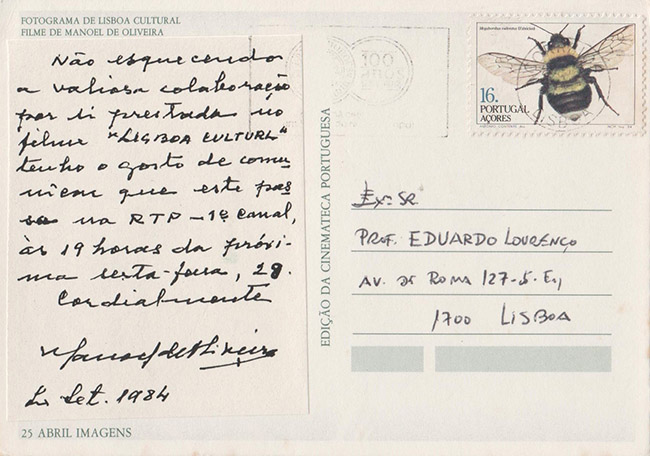 FOTOGRAMA DE LISBOA CULTURAL
FILME DE MANOEL DE OLIVEIRA
Não esquecendo
a valiosa colaboração
por ti prestada no
filme "LISBOA CULTURAL"
tenho o gosto de comu-
nicar que este pas-
sa na RTP – 1º Canal,
às 19 horas da próxi-
ma sexta-feira, 28.
Cordialmente
Manoel de Oliveira
Set. 1984
25 ABRIL IMAGENS
EDIÇÃO DA CINEMATECA PORTUGUESA
100
ANOS
16.
PORTUGAL
AÇORES
LISBOA
Exº SR
PROF. EDUARDO LOURENÇO
AV. DE ROMA 127-5. E.,
1700 LISBOA